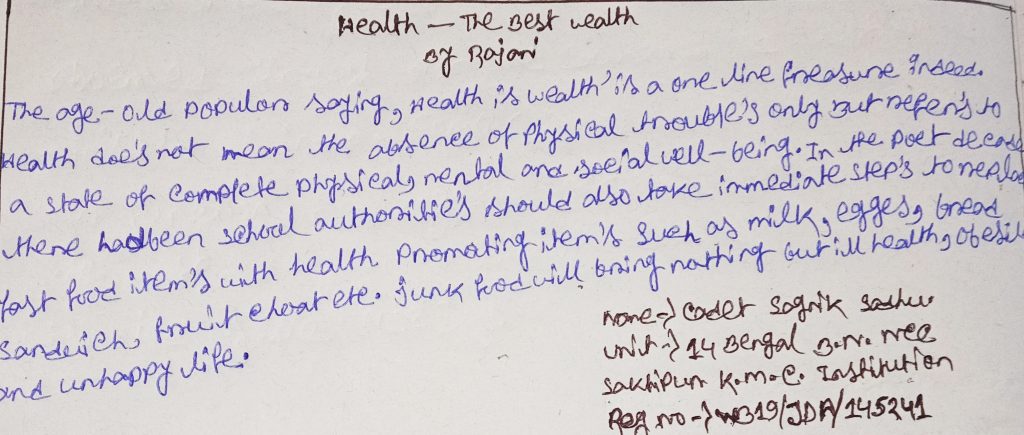 Health — The Best wealth
By Rajani
The age-old popular saying, Health is wealth' is a one line treasure indeed.
Health doe's not mean the absence of physical trouble's only But refer's to
a state of complete physical, mental and social well-being. In the poet decade
there hadbeen school authoritie's should also take immediate step's to replac
fast food item's with health promoting item's such as milk, egges, bread
Sandwich, fruit chart etc. junk food will bring nothing but ill health, obesit
and unhappy life.
Name → Cadet Sagnik Sadhu
unit → 14 Bengal B.N. NCC
Sakhipur K.M.C. Institution
Reg no → WB19/JDA/145241